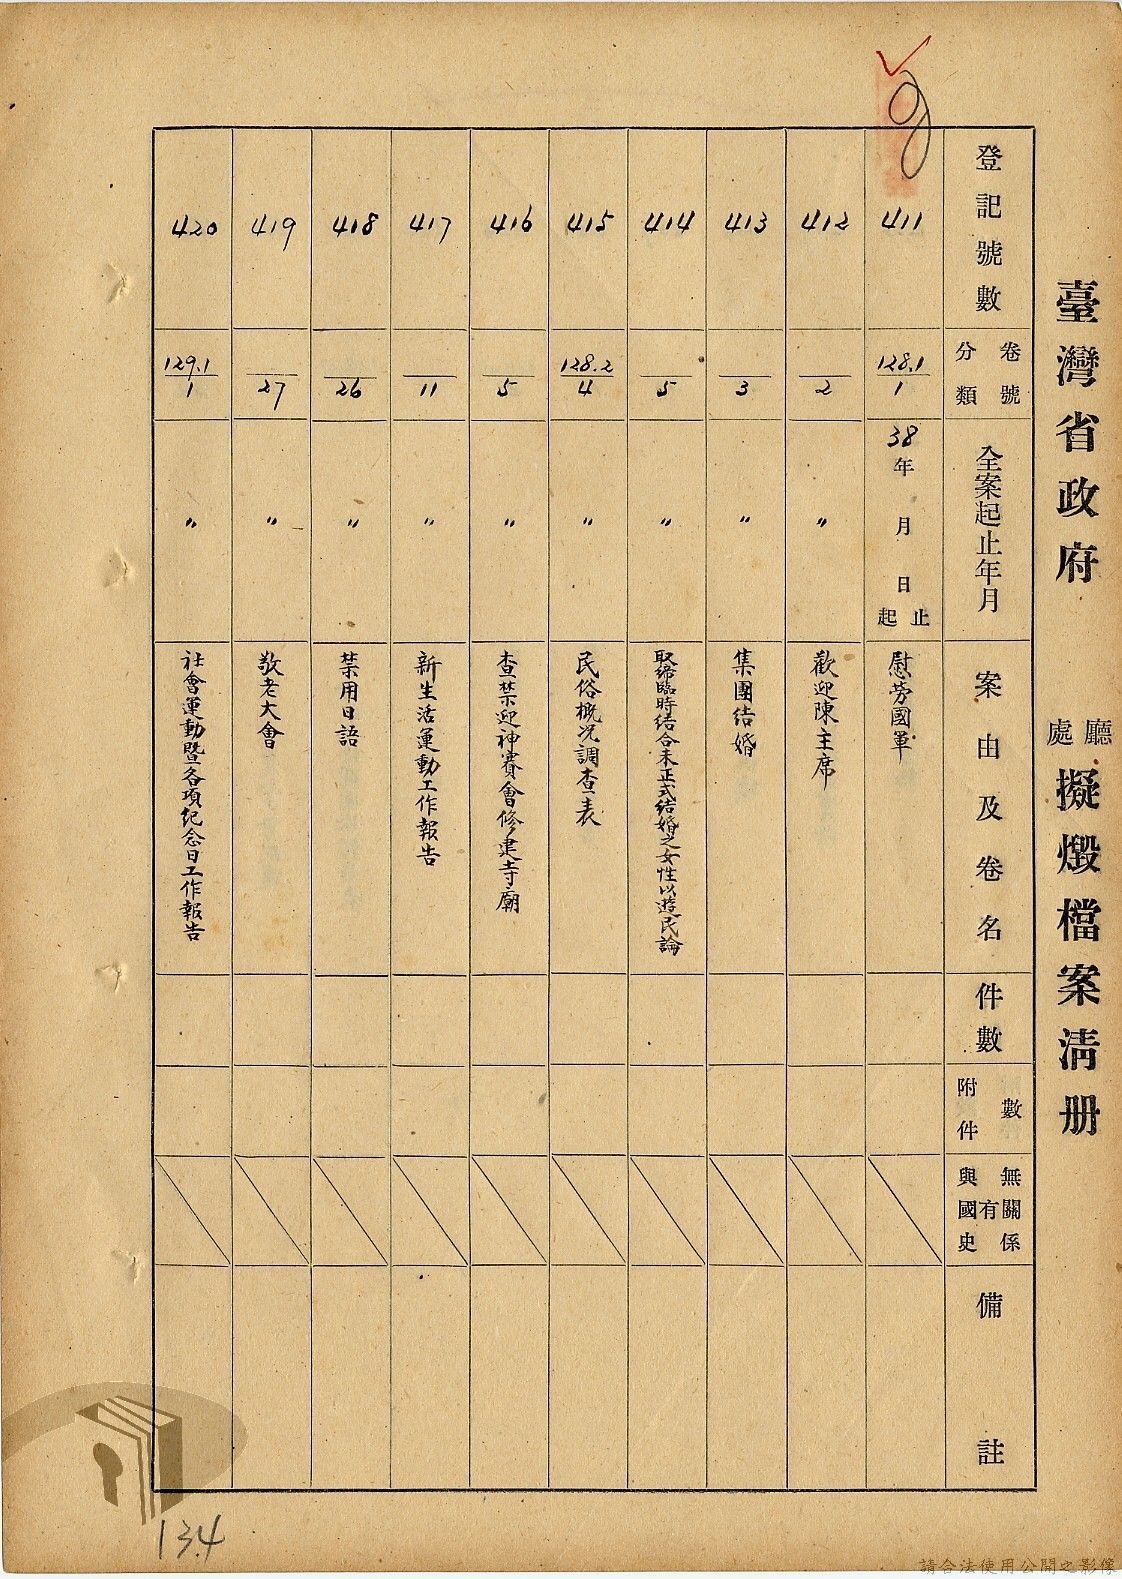 臺灣省政府 廳處 擬燬檔案淸册
登記號數
卷號
分類
全案起止年月
案由及卷名
件數
附件數
與國史有無關係
備註
411
128.1
1
38年 月 日 起止
慰勞國軍
412
2
〃
歡迎陳主席
413
3
〃
集團结婚
414
5
〃
取締臨時结合未正式结婚之女性以遊民論
415
128.2
4
〃
民俗概况調查表
416
5
〃
查禁迎神賽會修建寺廟
417
11
〃
新生活運動工作報告
418
26
〃
禁用日語
419
27
〃
敬老大會
420
129.1
1
〃
社會運動暨各項纪念日工作報告
134
請合法使用公開之影像